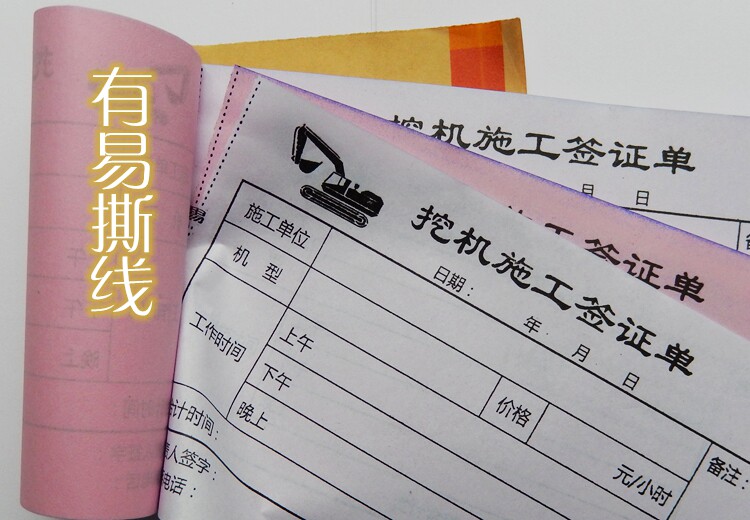 有易撕线
挖机施工签证单
月 日
施工签证单
挖机施工签证单
日期： 年 月 日
施工单位
机 型
工作时间
上午
下午
晚上
价格
元/小时
备注：
计时间：
人签字：
电话：